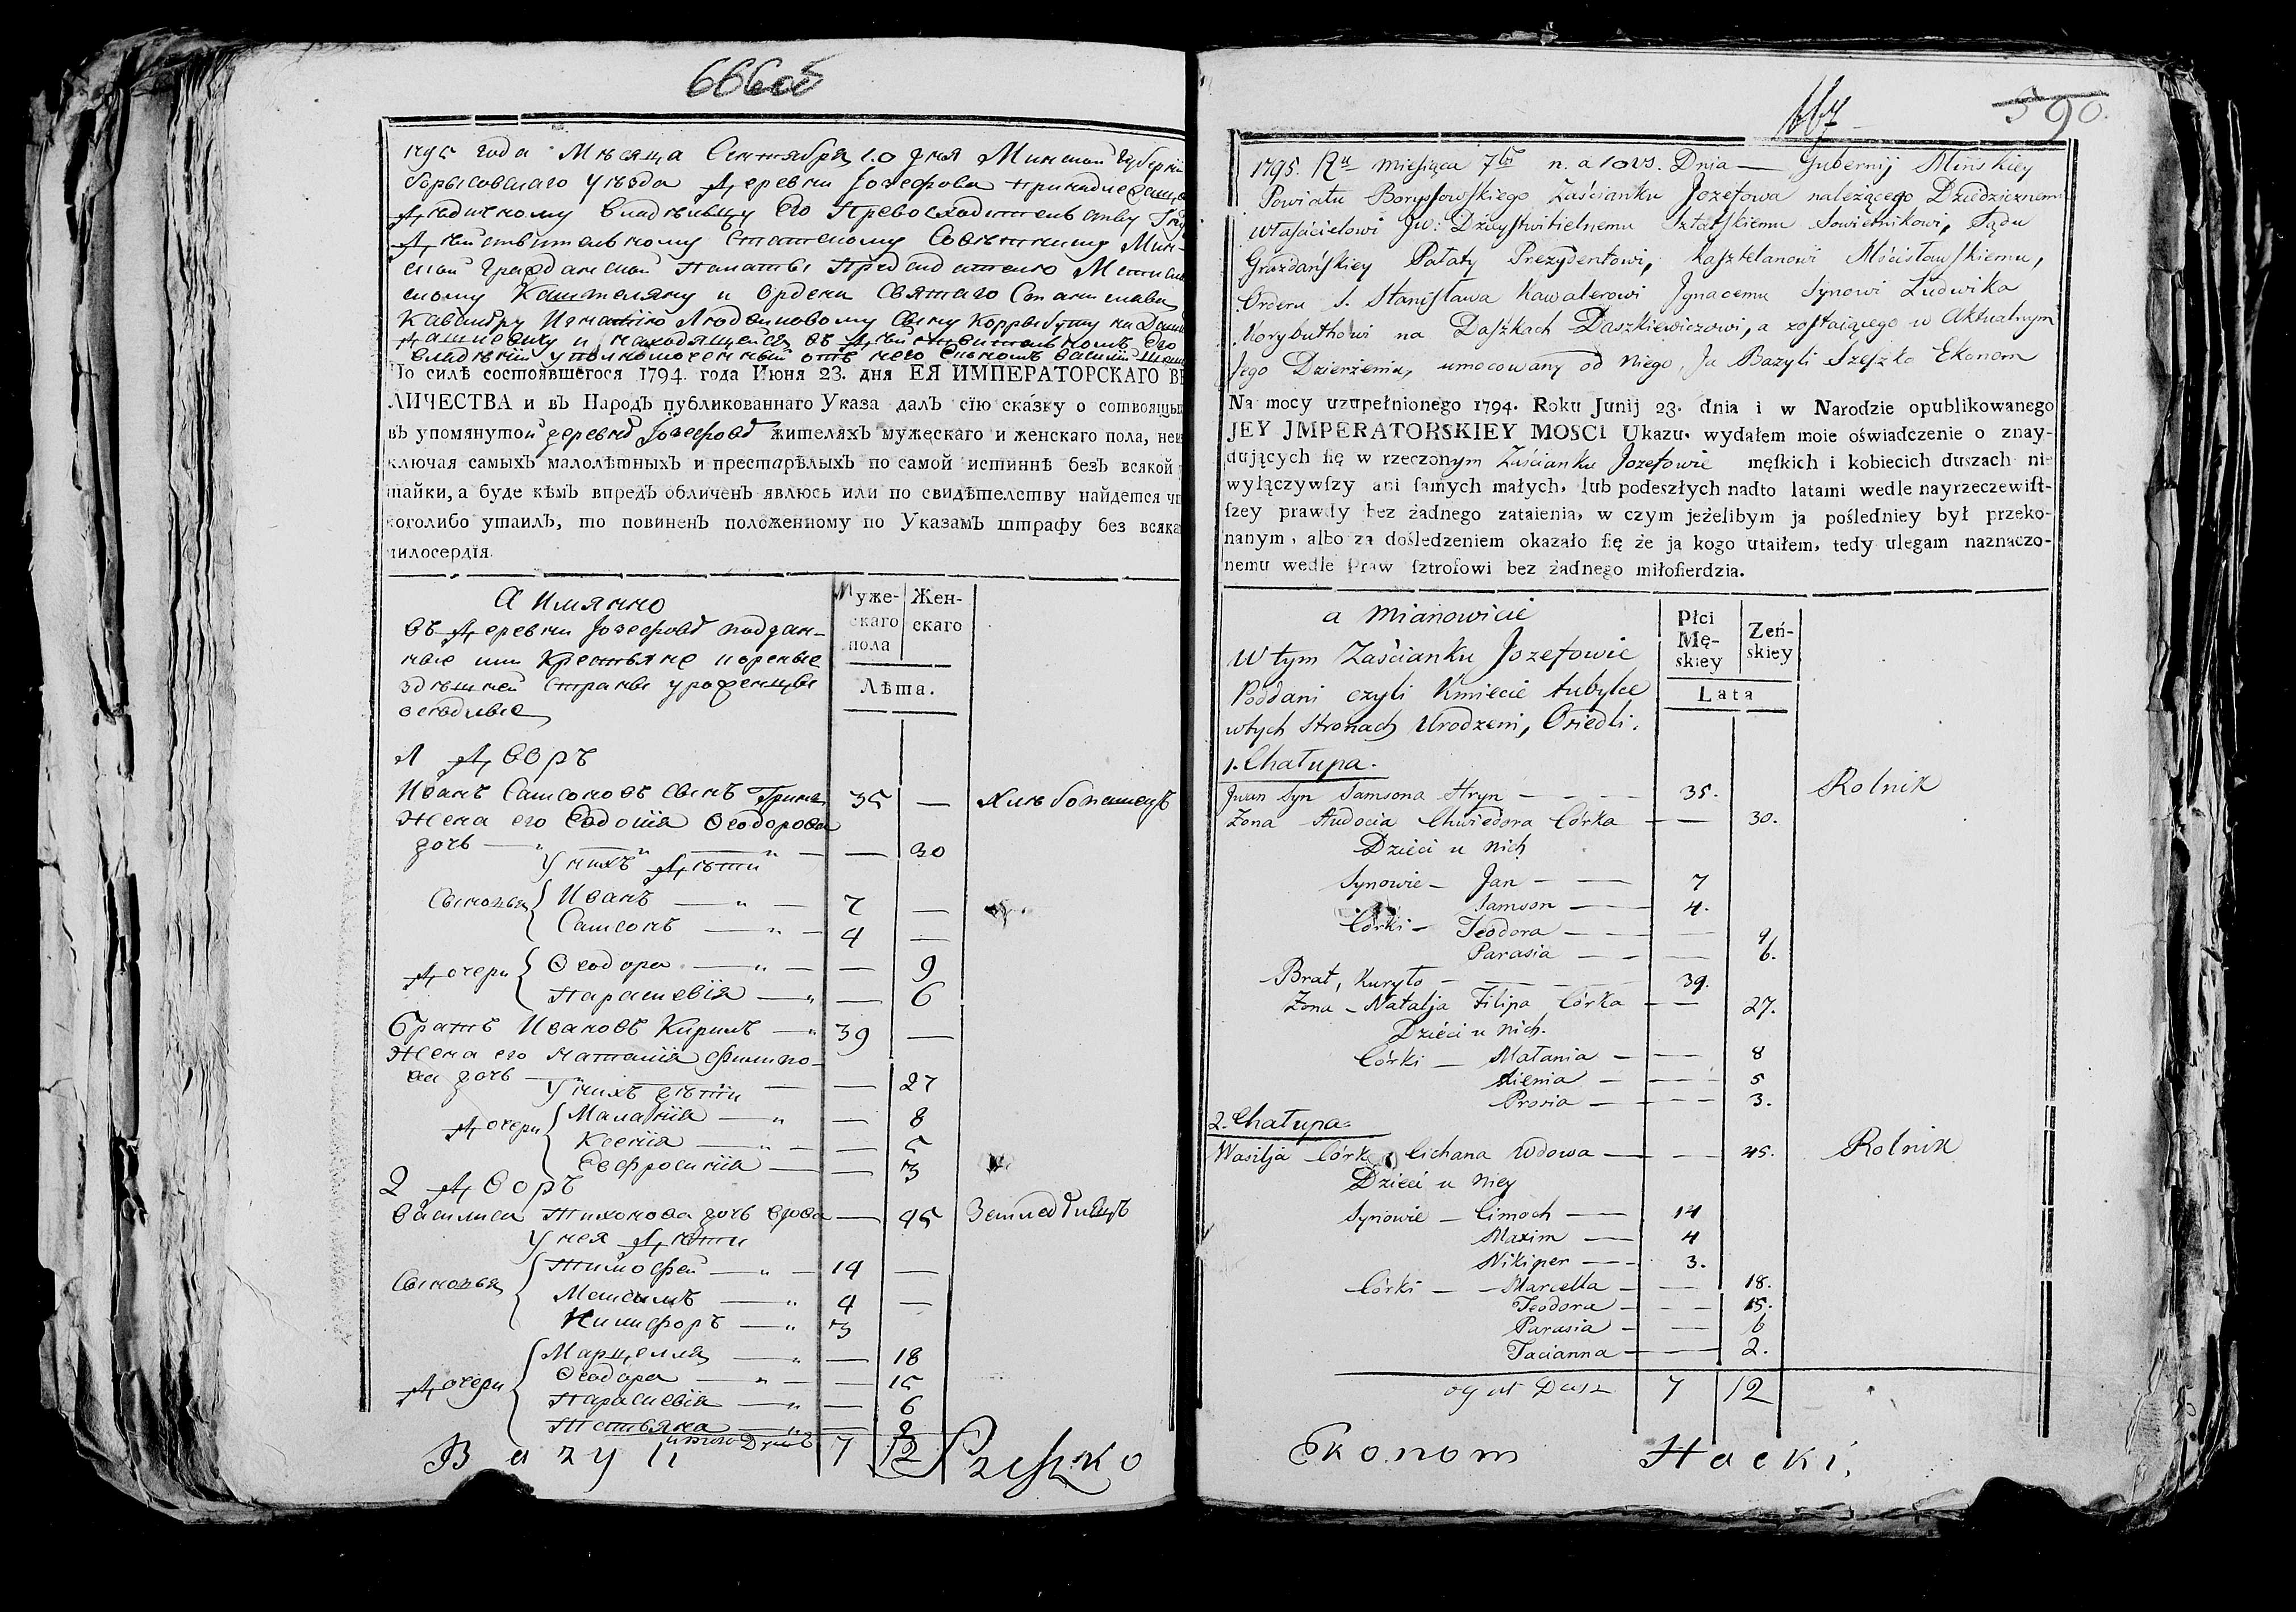 666об
1795 года Мѣсяца Сентября 10 дня Минской Губерніи
Борысовскаго уѣзда Деревни Іозефова принадлежащей
Дѣдичному владѣльцу Его Превосходительству
Дѣйствительному Статскому Совѣтнику Мин-
ской Гражданской Палаты Предсѣдателю Мстислав
скому Каштеляну и Ордена Святаго Станислава
Кавалеру Игнатію Людвиковому сыну Коррыбуту на Даш
Дашкевичу и находящейся въ Дѣйствительномъ Его
владѣніи уполномоченный отъ него Економъ Василій
По силѣ состоявшегося 1794. года Июня 23. дня ЕЯ ИМПЕРАТОРСКАГО ВЕ
ЛИЧЕСТВА и въ Народъ публикованнаго Указа далъ сїю ска́зку о сотвоящыхъ
въ упомянутой деревнѣ Іозефовѣ жителяхъ мужескаго и женскаго пола, неи
ключая самыхъ малолѣтныхъ и престарѣлыхъ по самой истиннѣ безъ всякой у
тайки, а буде кѣмъ впредъ обличенъ явлюсь или по свидѣтелству найдется что
коголибо утаилъ, то повиненъ положенному по Указамъ штрафу без всяка
милосердїя.
А имянно
Въ Деревни Іозефовѣ поддан-
ные или Крестьяне коренные
здѣшней страны уроженцы
оседлые
Муже-
скаго
пола
Жен-
скаго
Лѣта.
1 Дворъ
Иванъ Самсоновъ сынъ Гринь 35 — Хлѣбопашецъ
Жена его Евдокія Ѳеодорова
дочь — — 30
У нихъ Дѣти
Сыновья { Иванъ — 7 —
Самсонъ — 4 —
Дочери { Ѳеодора — — 9
Параскевія — — 6
Братъ Ивановъ Кирилъ — 39 —
Жена его Наталія Филипо-
ва дочь — — 27
У нихъ дѣти
Дочери { Маланія — — 8
Ксенія — — 5
Евфросинія — — 3
2 Дворъ
Василиса Тихонова дочь вдова — 45 Земледѣлецъ
У нея Дѣти
Сыновья { Тимофей — 14 —
Максимъ — 4 —
Никифоръ — 3
Дочери { Марцелля — — 18
Ѳеодора — — 15
Параскевія — — 6
Татьяна — — 2
итого Душъ 7 12
Bazyli Szeszko
667
590.
1795. Ru Miesiąca 7bra n. a 10 v.s. Dnia — Gubernij Minskiey
Powiatu Borysowskiego Zaścianku Jozefowa należącego Dziedzicznemu
właścicielowi Jw: Dzieystwitielnemu Sztatskiemu Sowietnikowi, Sądu
Grażdańskiey Pałaty Prezydentowi, Kasztelanowi Mścisławskiemu,
Orderu S. Stanisława Kawalerowi Jgnacemu Synowi Ludwika
Korybuthowi na Daszkach Daszkiewiczowi, a zostaiącego w Aktualnym
Jego Dzierżeniu, umocowany od Niego, Ja Bazyli Szeszko Ekonom
Na mocy uzupełnionego 1794. Roku Junij 23. dnia i w Narodzie opublikowanego
JEY JMPERATORSKIEY MOSCI Ukazu. wydałem moie oświadczenie o znay-
dujących ſię w rzeczonym Zaścianku Jozefowie męſkich i kobiecich duszach nie
wyłączywſzy ani ſamych małych, lub podeszłych nadto latami wedle nayrzeczewiſt-
ſzey prawdy bez żadnego zataienia, w czym jeżelibym ja pośledniey był przeko-
nanym, albo za dośledzeniem okazało ſię że ja kogo utaiłem, tedy ulegam naznaczo-
nemu wedle Praw ſztrofowi bez żadnego miłoſierdzia.
a Mianowicie
W tym Zaścianku Jozefowie
Poddani czyli Kmiecie tubylce
wtych stronach Urodzeni, Osiedli.
Płci
Mę-
skiey
Zeń-
skiey
Lata
1. Chałupa.
Jwan Syn Samsona Hryn — 35. Rolnik
Zona Audocia Chwiedora Córka — 30.
Dzieci u Nich
Synowie — Jan — 7
Samson — 4.
Córki — Teodora — — 9
Parasia — — 6.
Brat, Kuryło — 39.
Zona — Natalja Filipa Córka — 27.
Dzieci u Nich.
Córki — Małania — — 8
Xienia — — 5
Prosia — — 3.
2. Chałupa.
Wasilja Córka Cichana Wdowa — — 45. Rolnik
Dzieci u Niey
Synowie — Cimoch — 14
Maxim — 4
Nikiper — 3.
Córki — Marcella — — 18.
Teodora — — 15.
Parasia — — 6
Tacianna — — 2.
ogół Dusz 7 12
Ekonom Hacki.